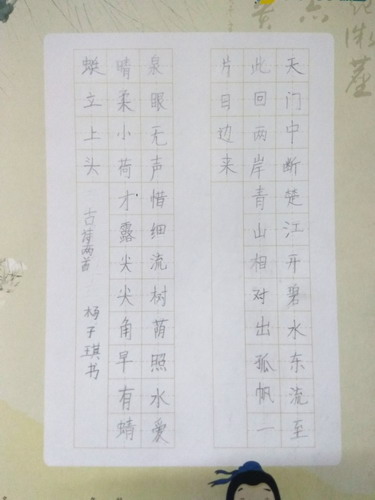 天门中断楚江开碧水东流至
此回两岸青山相对出孤帆一
片日边来
泉眼无声惜细流树荫照水爱
晴柔小荷才露尖尖角早有蜻
蜓立上头 古诗两首 杨子琪书